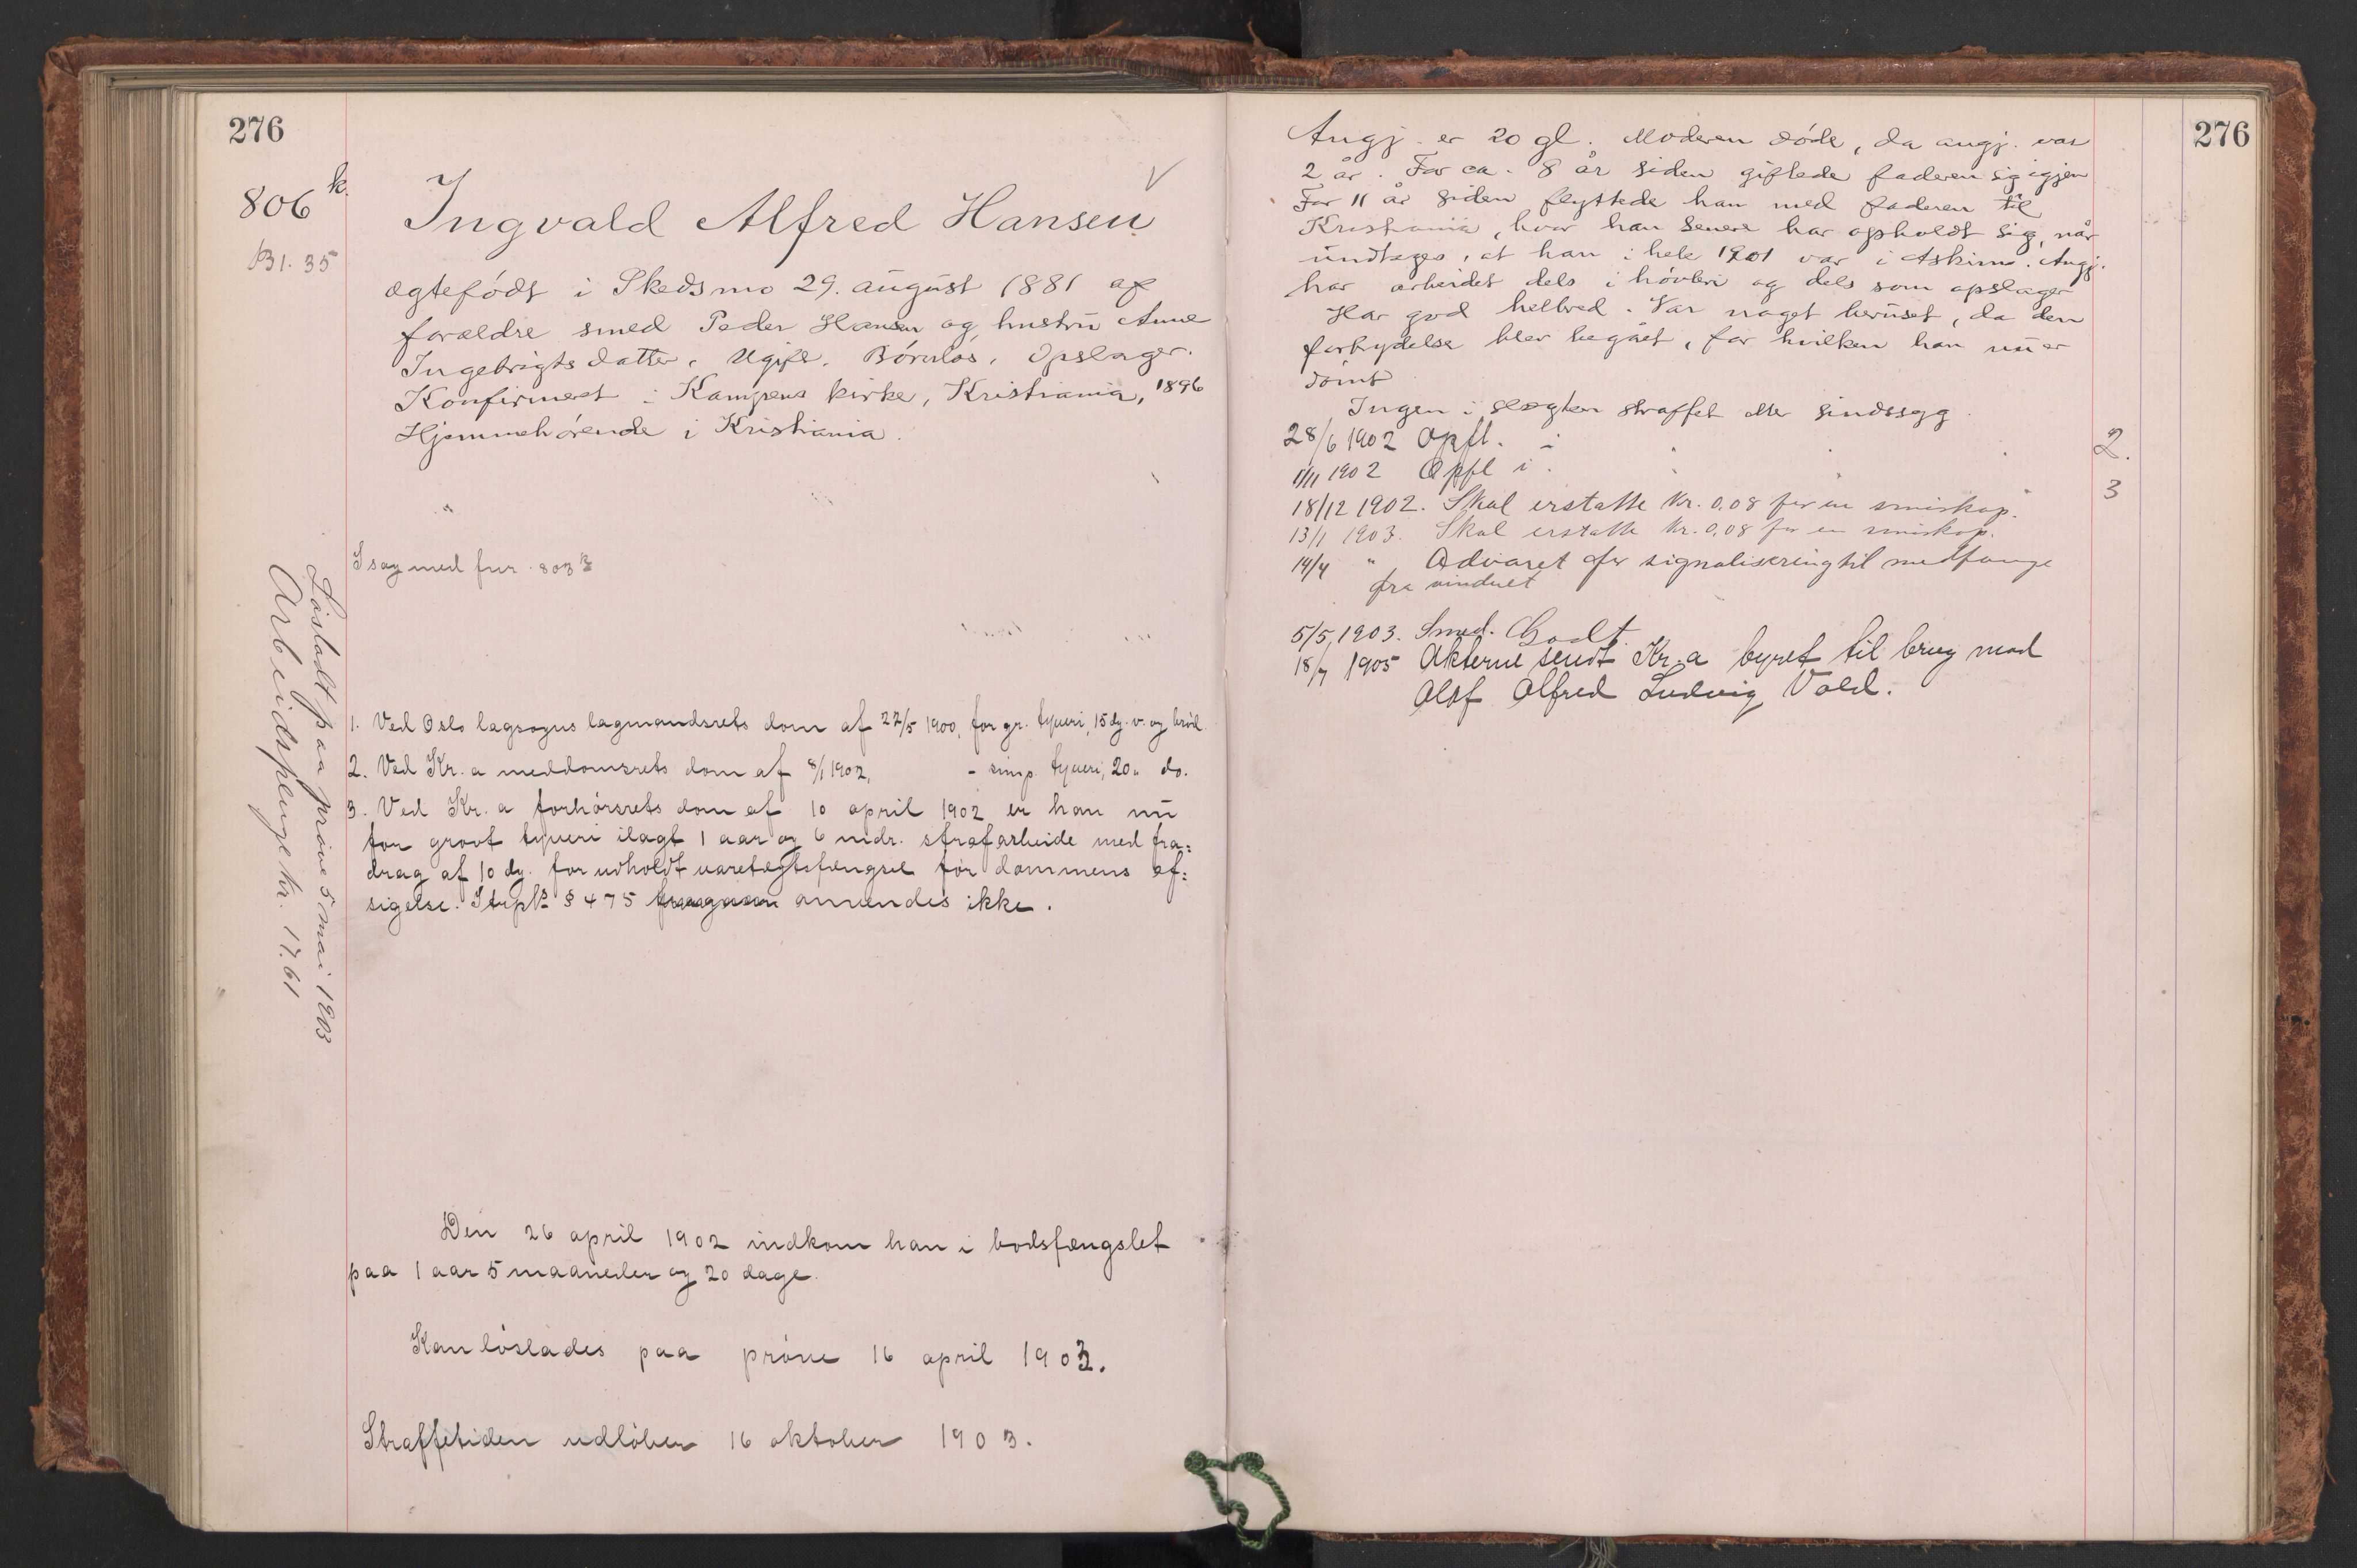 276
806 k.
B1. 35
Ingvald Alfred Hansen
ægtefødt i Skedsmo 29. august 1881 af
forældre smed Peder Hansen og hustru Anne
Ingebrigtsdatter. Ugift. Børnløs. Opslager.
Konfirmeret i Kampens kirke, Kristiania, 1896
Hjemmehørende i Kristiania.
I sag med fnr. 803 k
Løsladt paa prøve 5 mai 1903
Arbeidspenge kr. 17.61
1. Ved Oslo lagsogns lagmandsrets dom af 22/5 1900, for gr. tyveri, 15 dg. v. og brød.
2. Ved Kr.a meddomsrets dom af 8/1 1902, - simp. tyveri, 20 " do.
3. Ved Kr.a forhørsrets dom af 10 april 1902 er han nu
for grovt tyveri ilagt 1 aar og 6 mdr. strafarbeide med fra=
drag af 10 dg. for udholdt varetægtsfængsel før dommens af=
sigelse. Strpl.s § 475 anvendes ikke.
Den 26 april 1902 indkom han i bodsfængslet
paa 1 aar 5 maaneder og 20 dage.
Kan løslades paa prøve 16 april 1903.
Straffetiden udløber 16 oktober 1903.
276
Angj. er 20 gl. Moderen døde, da angj. var
2 år. For ca. 8 år siden giftede faderen sig igjen
For 11 år siden flyttede han med faderen til
Kristiania, hvor han senere har opholdt sig, når
undtages, at han i hele 1901 var i Askim. Angj.
har arbeidet dels i høvleri og dels som opslager
Har god helbred. Var noget beruset, da den
forbrydelse blev begået, for hvilken han nu er
dømt
Ingen i slægten straffet eller sindssyg.
28/6 1902 Opfl. i 2.
1/11 1902 Opfl i 3
18/12 1902. Skal erstatte kr. 0,08 for en
13/1 1903. Skal erstatte kr. 0,08 for en
14/4 " Advaret for signalisering til medfange
fra vinduet
5/5 1903. Smed. Godt.
18/7 1905 Akterne sendt Kr.a byret til brug mod
Olaf Alfred Ludvig Vold.